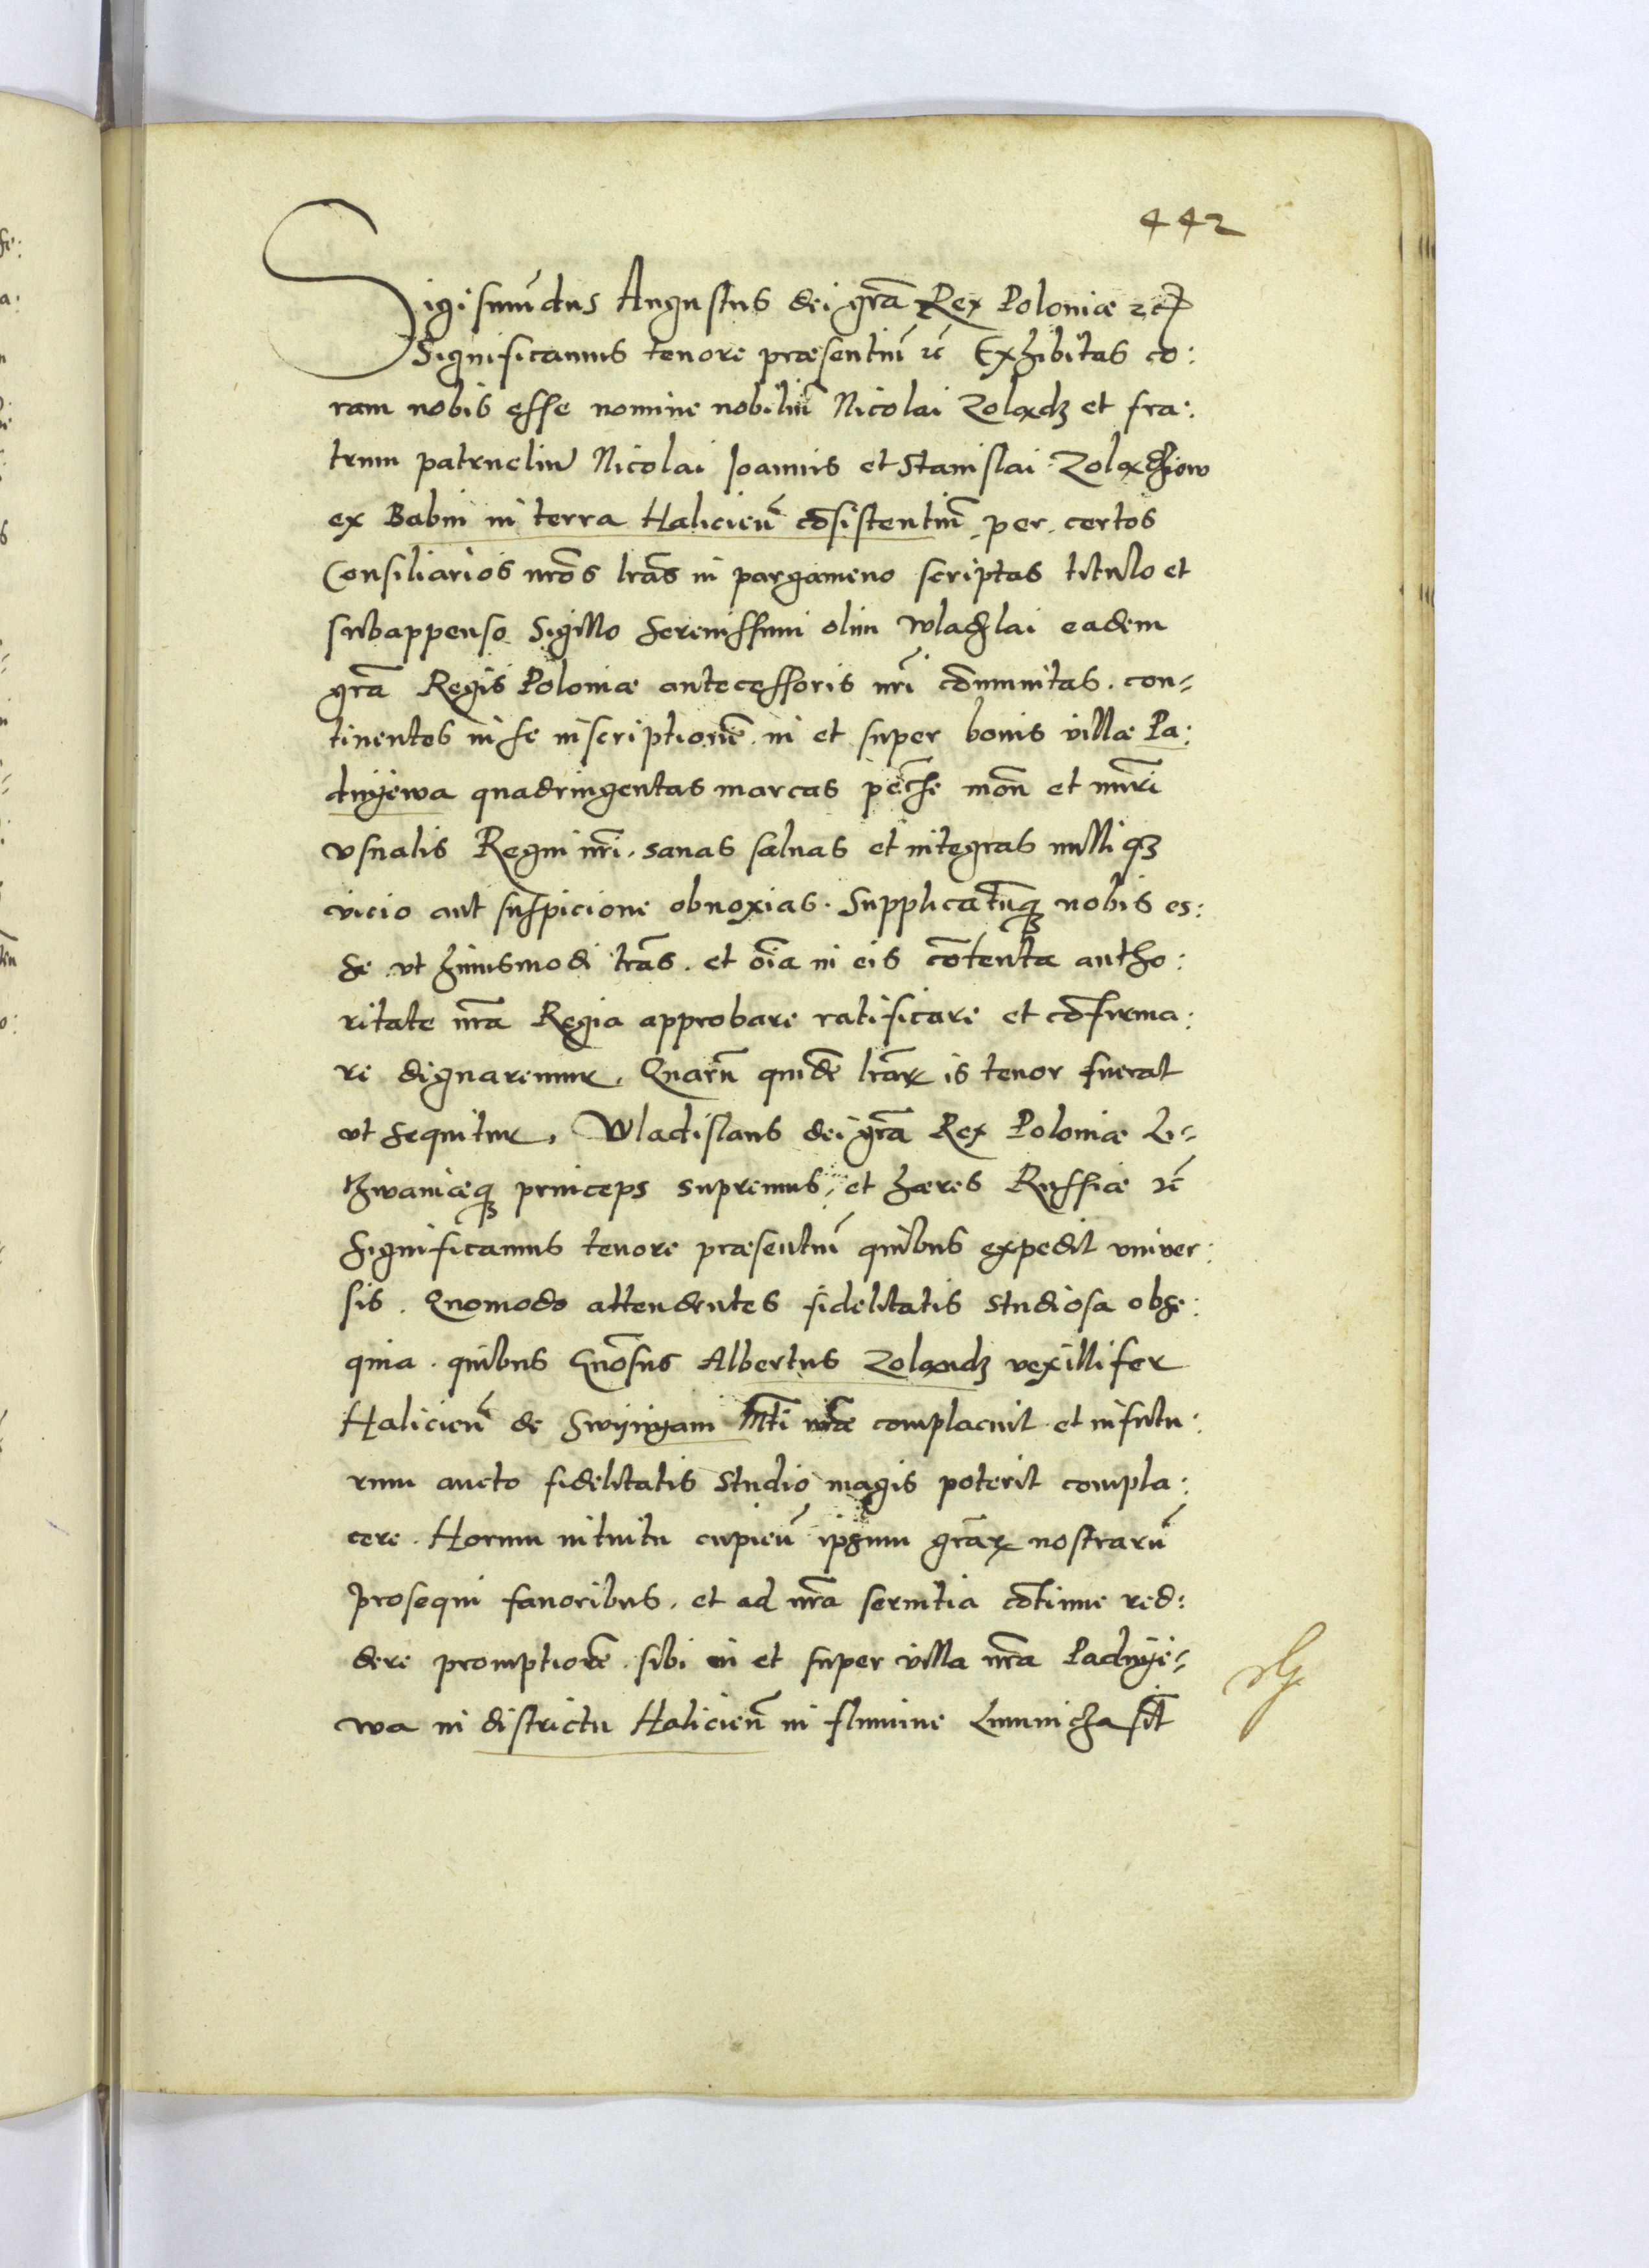 442
Sigismūdus Augustus dei grā Rex Poloniæ ꝛc
Significamus tenore præsentiū ꝛc Exhibitas co:
ram nobis esse nomine nobiliū Nicolai Zolądz et fra:
trum patrueliū Nicolai Joannis et Stanislai Zolądziow
ex Babin in terra Halicieñ cōsistentiū per certos
Consiliarios nr̄os lr̄as in pargameno scriptas titulo et
subappenso Sigillo serenissimi olim Wladislai eadem
grā Regis Poloniæ antecessoris nr̄i cōmunitas. con-
tinentes in se inscriptionē in et super bonis villæ Pa:
dnyewa quadringentas marcas pecūe mon̄ et nūri
vsualis Regni nr̄i. sanas saluas et integras nulliqȝ
vicio aut suspicione obnoxias. Supplicatūqȝ nobis es:
se vt huiusmodi lr̄as. et oīa in eis cōtenta autho:
ritate nr̄a Regia approbare ratificare et cōfirma:
re dignaremur. Quarū quidē lr̄arꝝ is tenor fuerat
vt sequitur. Wladislaus dei grā Rex Poloniæ Li-
thwaniæqȝ princeps supremus, et hæres Russiæ ꝛc
Significamus tenore præsentiū quibus expedit vniuer:
sis. Quomodo attendentes fidelitatis studiosa obse:
quia. quibus Gnōsus Albertus Zolandz vexillifer
Halicieñ de Swyngam Mti nr̄æ complacuit et in futu:
rum aucto fidelitatis studio magis poterit compla:
cere. Horum intuitu cupieñ ipsum grārꝝ nostrarū
prosequi fauoribus. et ad nr̄a seruitia cōtinue red:
dere promptiorē. sibi in et super villa nr̄a Padnye-
wa in districtu Halicieñ in flumine Lumnicza sit̄